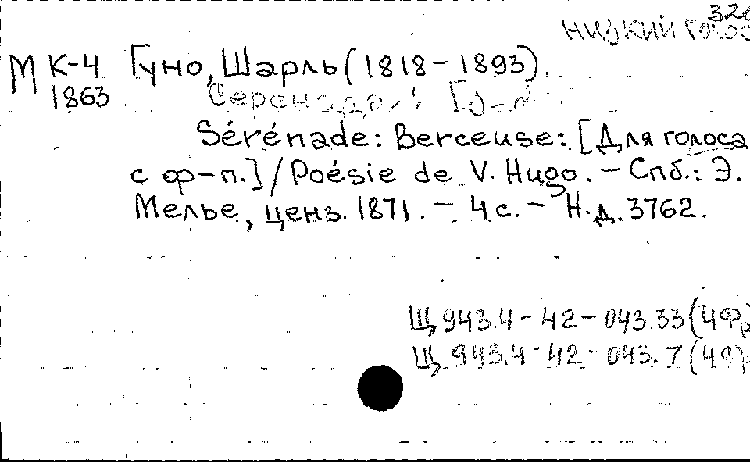 320
низкий голос
М К-4 Гуно, Шарль (1818-1893).
1863 Серенада
Sérénade: Berceuse: [Для голоса
с ф-п.] / Poésie de V. Hugo. - Спб.: Э.
Мелье, ценз. 1871. - 4 с. - Н.д. 3762.
Щ 943.4-42-043.33 (4Фр
Щ 943.4-42-043.7 (4Фр